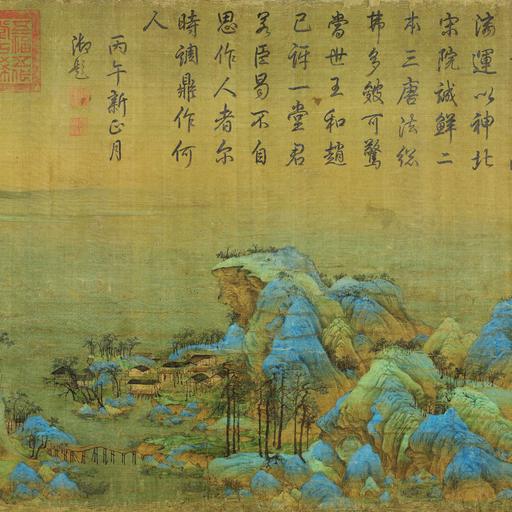 漓運以神北
宋院誠鮮二
本三唐法総
弗多皴可驚
當世王和趙
已訝一堂君
若臣曷不自
思作人者尔
時調鼎作何
人
丙午新正月
御題